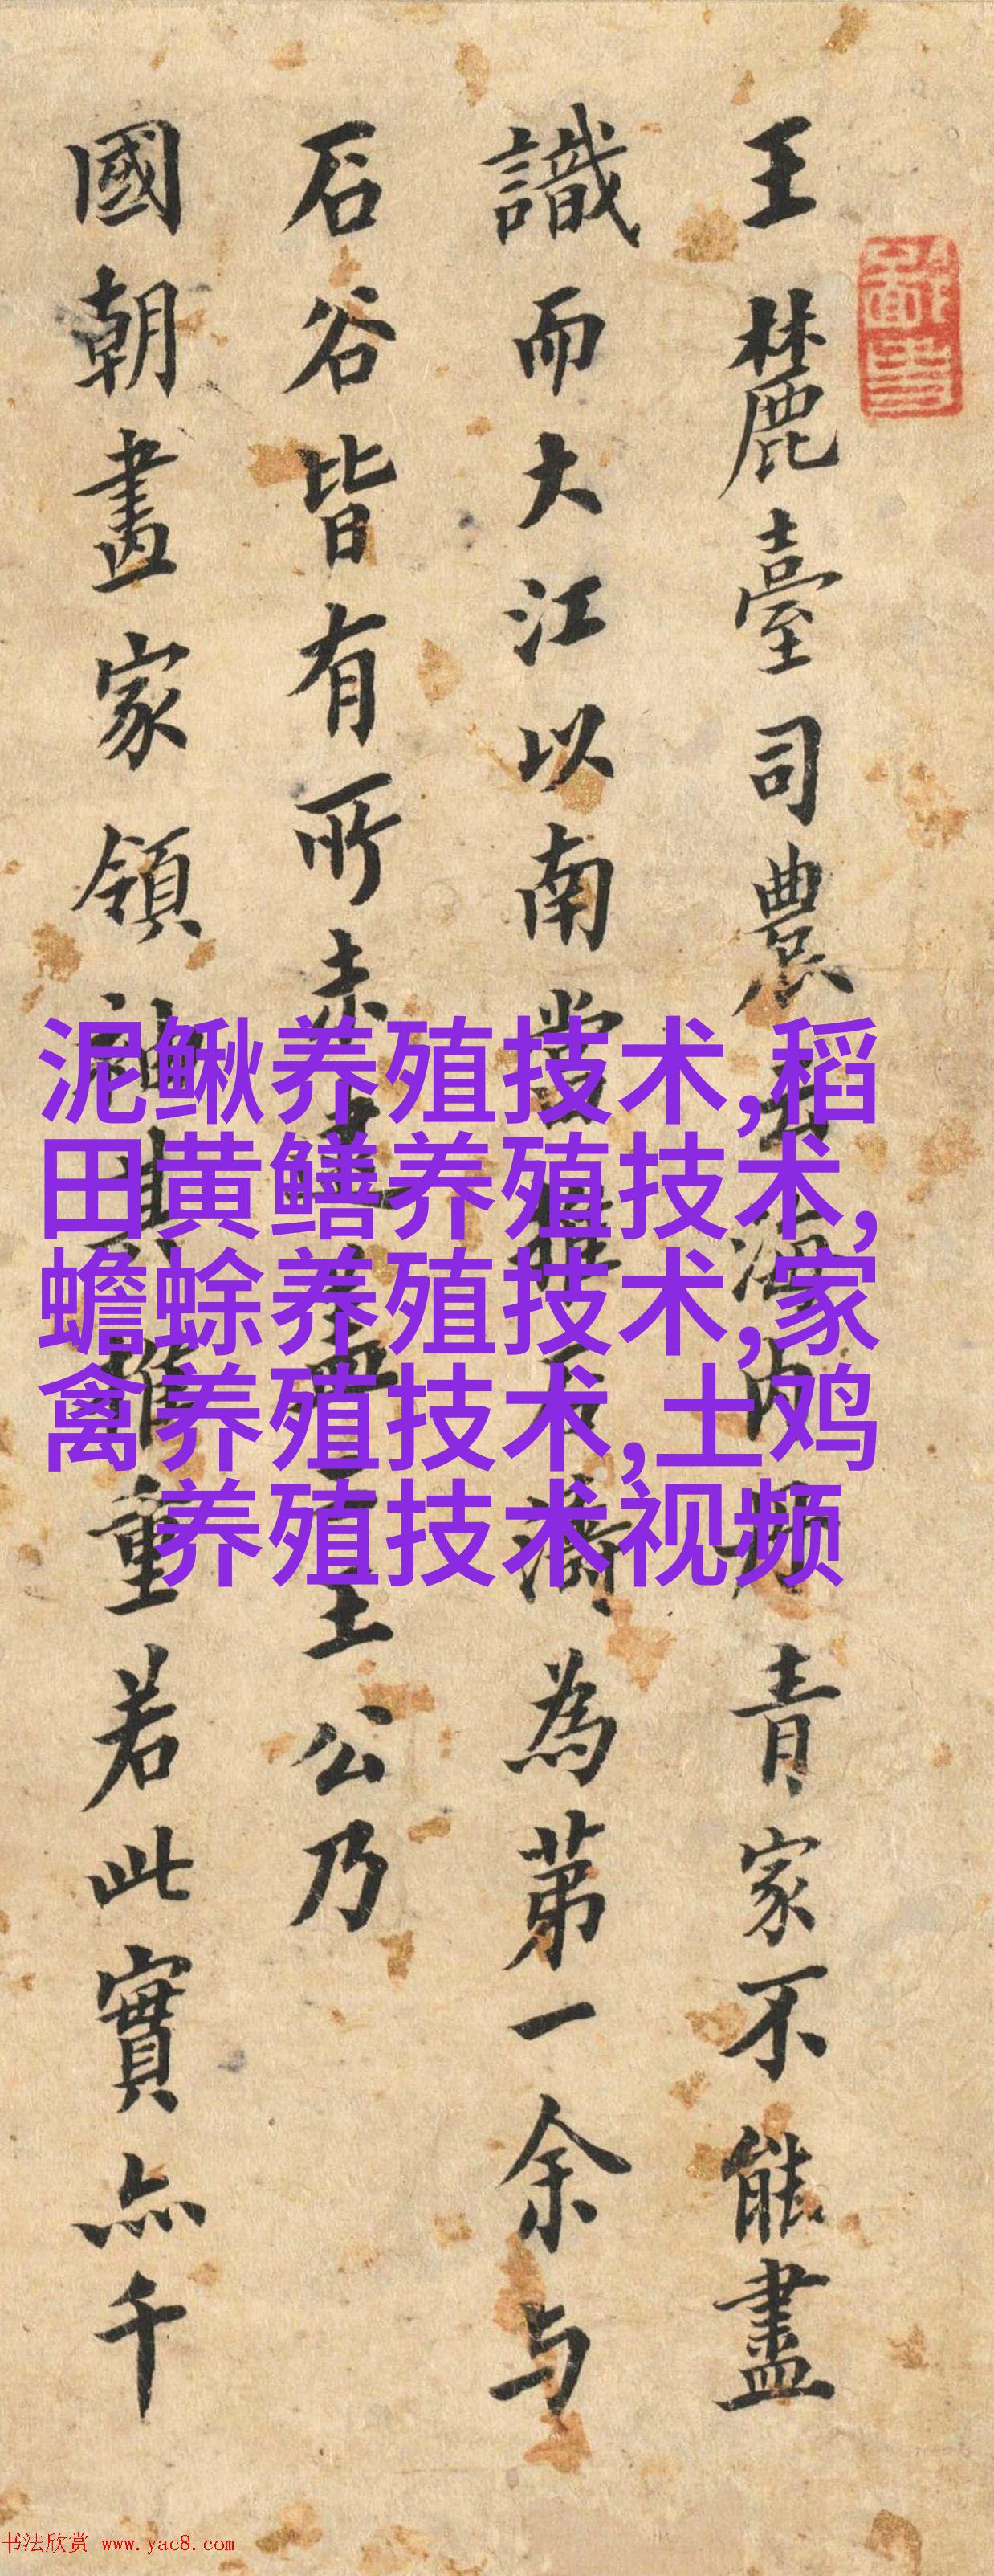 王麓臺司農
青家不能盡
識而大江以南當
為第一余与
石谷皆有所未
公乃
國朝畫家領神
重若此實亦千
泥鳅养殖技术,稻
田黄鳝养殖技术,
蟾蜍养殖技术,家
禽养殖技术,土鸡
养殖技术视频
书法欣赏 www.yac8.com